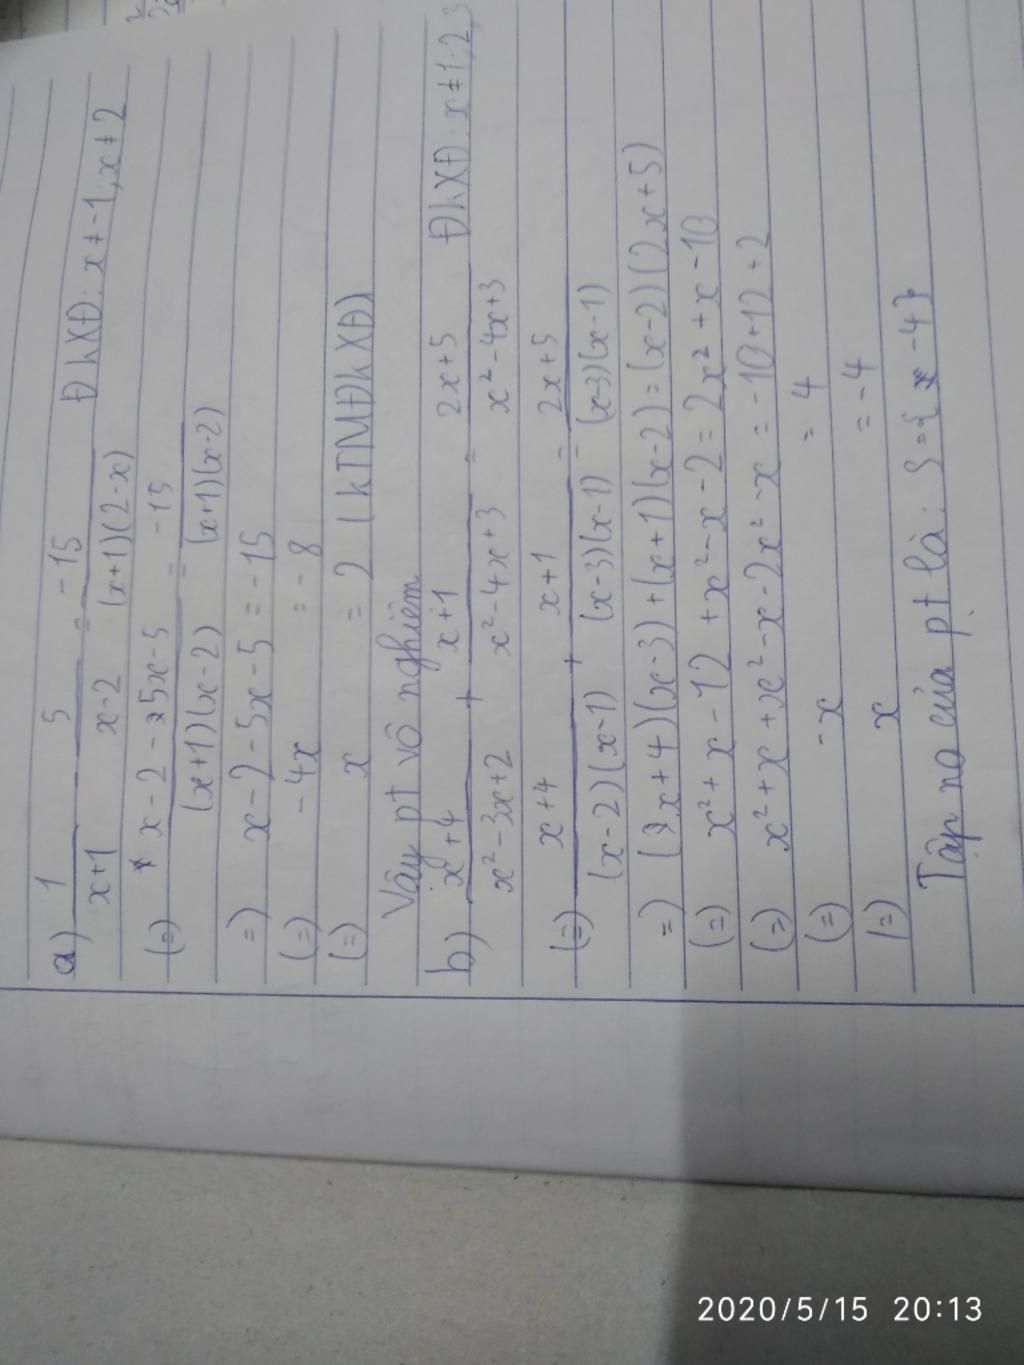 a) 1/(x+1) - 5/(x-2) = -15/((x+1)(2-x)) ĐkXĐ: x ≠ -1; x ≠ 2
(=) (x - 2 - 5x - 5)/((x+1)(x-2)) = -15/((x+1)(x-2))
=) x - 2 - 5x - 5 = -15
(=) -4x = -8
(=) x = 2 (kTMĐkXĐ)
Vậy pt vô nghiệm
b) (x+4)/(x² - 3x + 2) + (x+1)/(x² - 4x + 3) = (2x+5)/(x² - 4x + 3) ĐkXĐ: x ≠ 1; 2; 3
(=) (x+4)/((x-2)(x-1)) + (x+1)/((x-3)(x-1)) = (2x+5)/((x-3)(x-1))
=) (x+4)(x-3) + (x+1)(x-2) = (x-2)(2x+5)
(=) x² + x - 12 + x² - x - 2 = 2x² + x - 10
(=) x² + x + x² - x - 2x² - x = -10 + 12 + 2
(=) -x = 4
(=) x = -4
Tập no của pt là: S = { -4}
2020/5/15 20:13